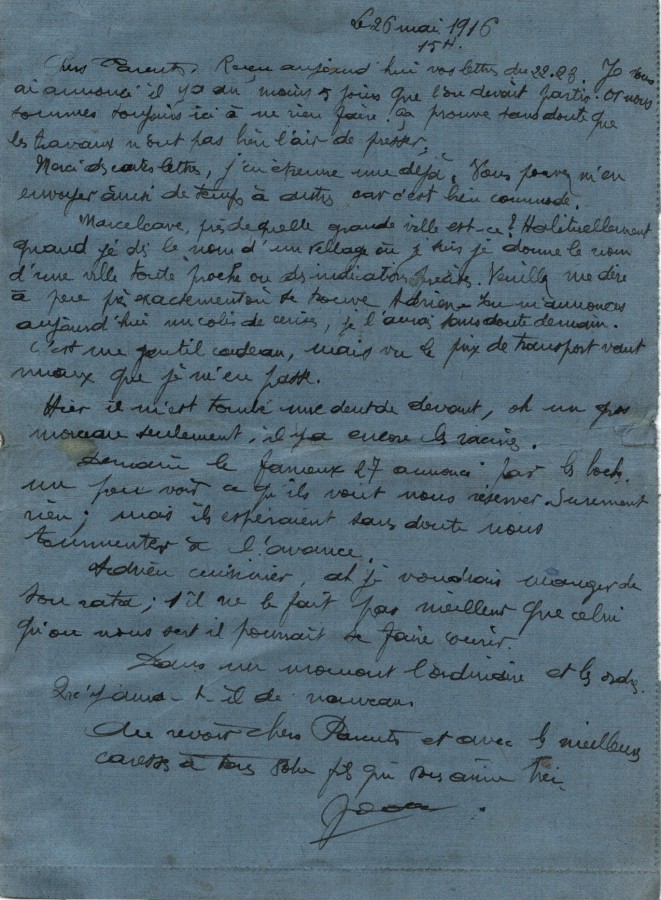 Le 26 mai 1916
15H.
Chers Parents. Reçu aujourd'hui vos lettres du 22.23. Je vous
ai annoncé il y a au moins 5 jours que l'on devait partir. Or nous
sommes toujours ici à ne rien faire. Ça prouve sans doute que
les travaux n'ont pas bien l'air de presser.
Merci des cartes lettres, j'en étrenne une déjà. Vous pouvez m'en
envoyer ainsi de temps à autres car c'est bien commode.
Marcelcave, près de quelle grande ville est-ce? Habituellement
quand je dis le nom d'un village où j'suis je donne le nom
d'une ville toute proche ou des indications précises. Veuillez me dire
à peu près exactement où se trouve Adrien. Tu m'annonces
aujourd'hui un colis de cerises, je l'aurai sans doute demain.
C'est un gentil cadeau, mais vu le prix de transport vaut
mieux que je m'en passe.
Hier il m'est tombé une dent de devant, oh un gros
morceau seulement, il y a encore les racines.
Demain le fameux 27 annoncé par les boch.
un peu voir ce qu'ils vont nous réserver. Surement
rien; mais ils espéraient sans doute nous
tourmenter à l'avance.
Adrien cuisinier, ah je voudrais manger de
son rata; s'il ne le fait pas meilleur que celui
qu'on nous sert il pourrait se faire
Dans un moment l'ordinaire et les ordres
Qu'y aura-t-il de nouveau
Au revoir chers Parents et avec les meilleures
caresses à tous votre fils qui vous aime